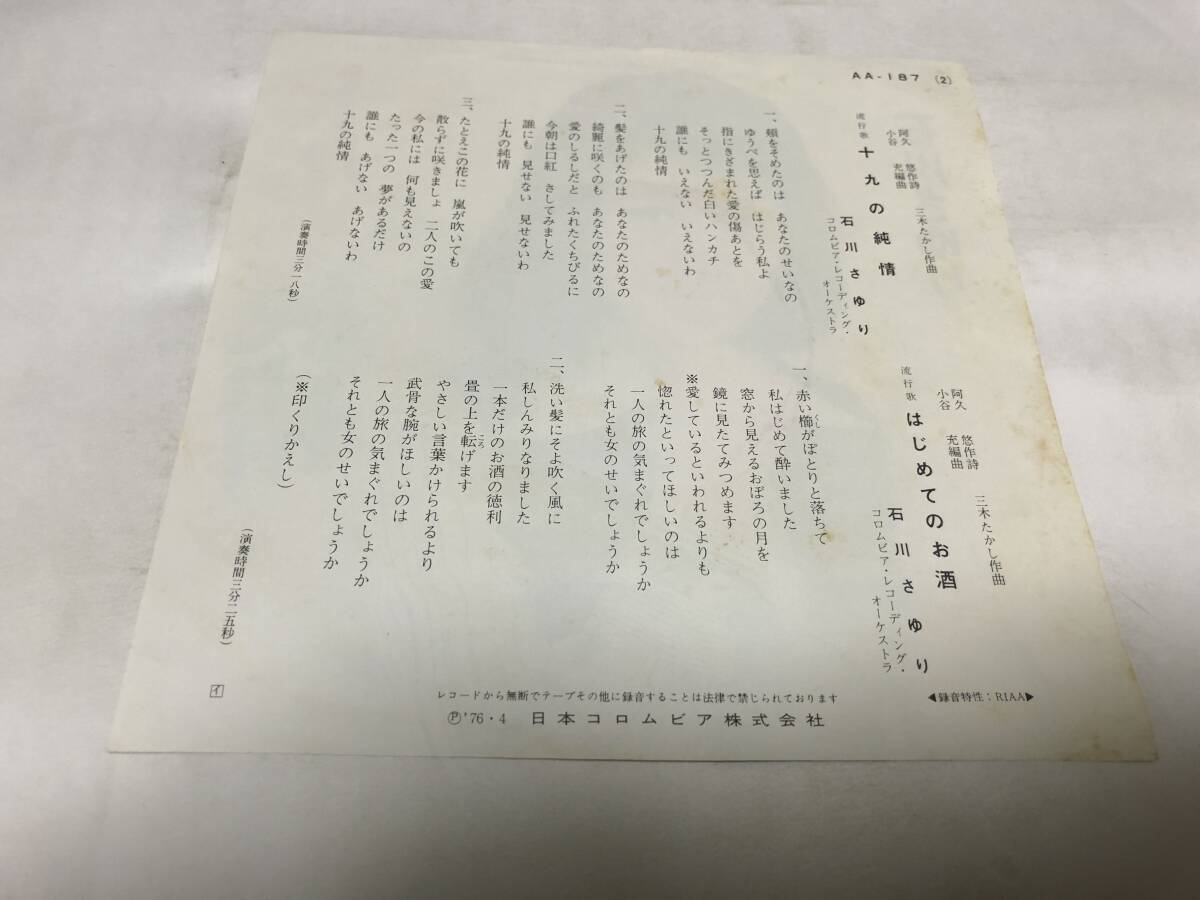 AA-187 (2)
阿久 悠作詩
小谷 充編曲
三木たかし作曲
流行歌 十九の純情
石川さゆり
コロムビア・レコーディング・
オーケストラ
一、頬をそめたのは あなたのせいなの
ゆうべを思えば はじらう私よ
指にきざまれた愛の傷あとを
そっとつつんだ白いハンカチ
誰にも いえない いえないわ
十九の純情
二、髪をあげたのは あなたのためなの
綺麗に咲くのも あなたのためなの
愛のしるしだと ふれたくちびるに
今朝は口紅 さしてみました
誰にも 見せない 見せないわ
十九の純情
三、たとえこの花に 嵐が吹いても
散らずに咲きましょ 二人のこの愛
今の私には 何も見えないの
たった一つの 夢があるだけ
誰にも あげない あげないわ
十九の純情
(演奏時間三分一八秒)
阿久 悠作詩
小谷 充編曲
三木たかし作曲
流行歌 はじめてのお酒
石川さゆり
コロムビア・レコーディング・
オーケストラ
一、赤い櫛がぽとりと落ちて
くし
私はじめて酔いました
窓から見えるおぼろの月を
鏡に見たてみつめます
※愛しているといわれるよりも
惚れたといってほしいのは
一人の旅の気まぐれでしょうか
それとも女のせいでしょうか
二、洗い髪にそよ吹く風に
私しんみりなりました
一本だけのお酒の徳利
畳の上を転げます
ころ
やさしい言葉かけられるより
武骨な腕がほしいのは
一人の旅の気まぐれでしょうか
それとも女のせいでしょうか
(※印くりかえし)
(演奏時間三分二五秒)
レコードから無断でテープその他に録音することは法律で禁じられております
◀録音特性:RIAA▶
Ⓟ'76・4 日本コロムビア株式会社
イ